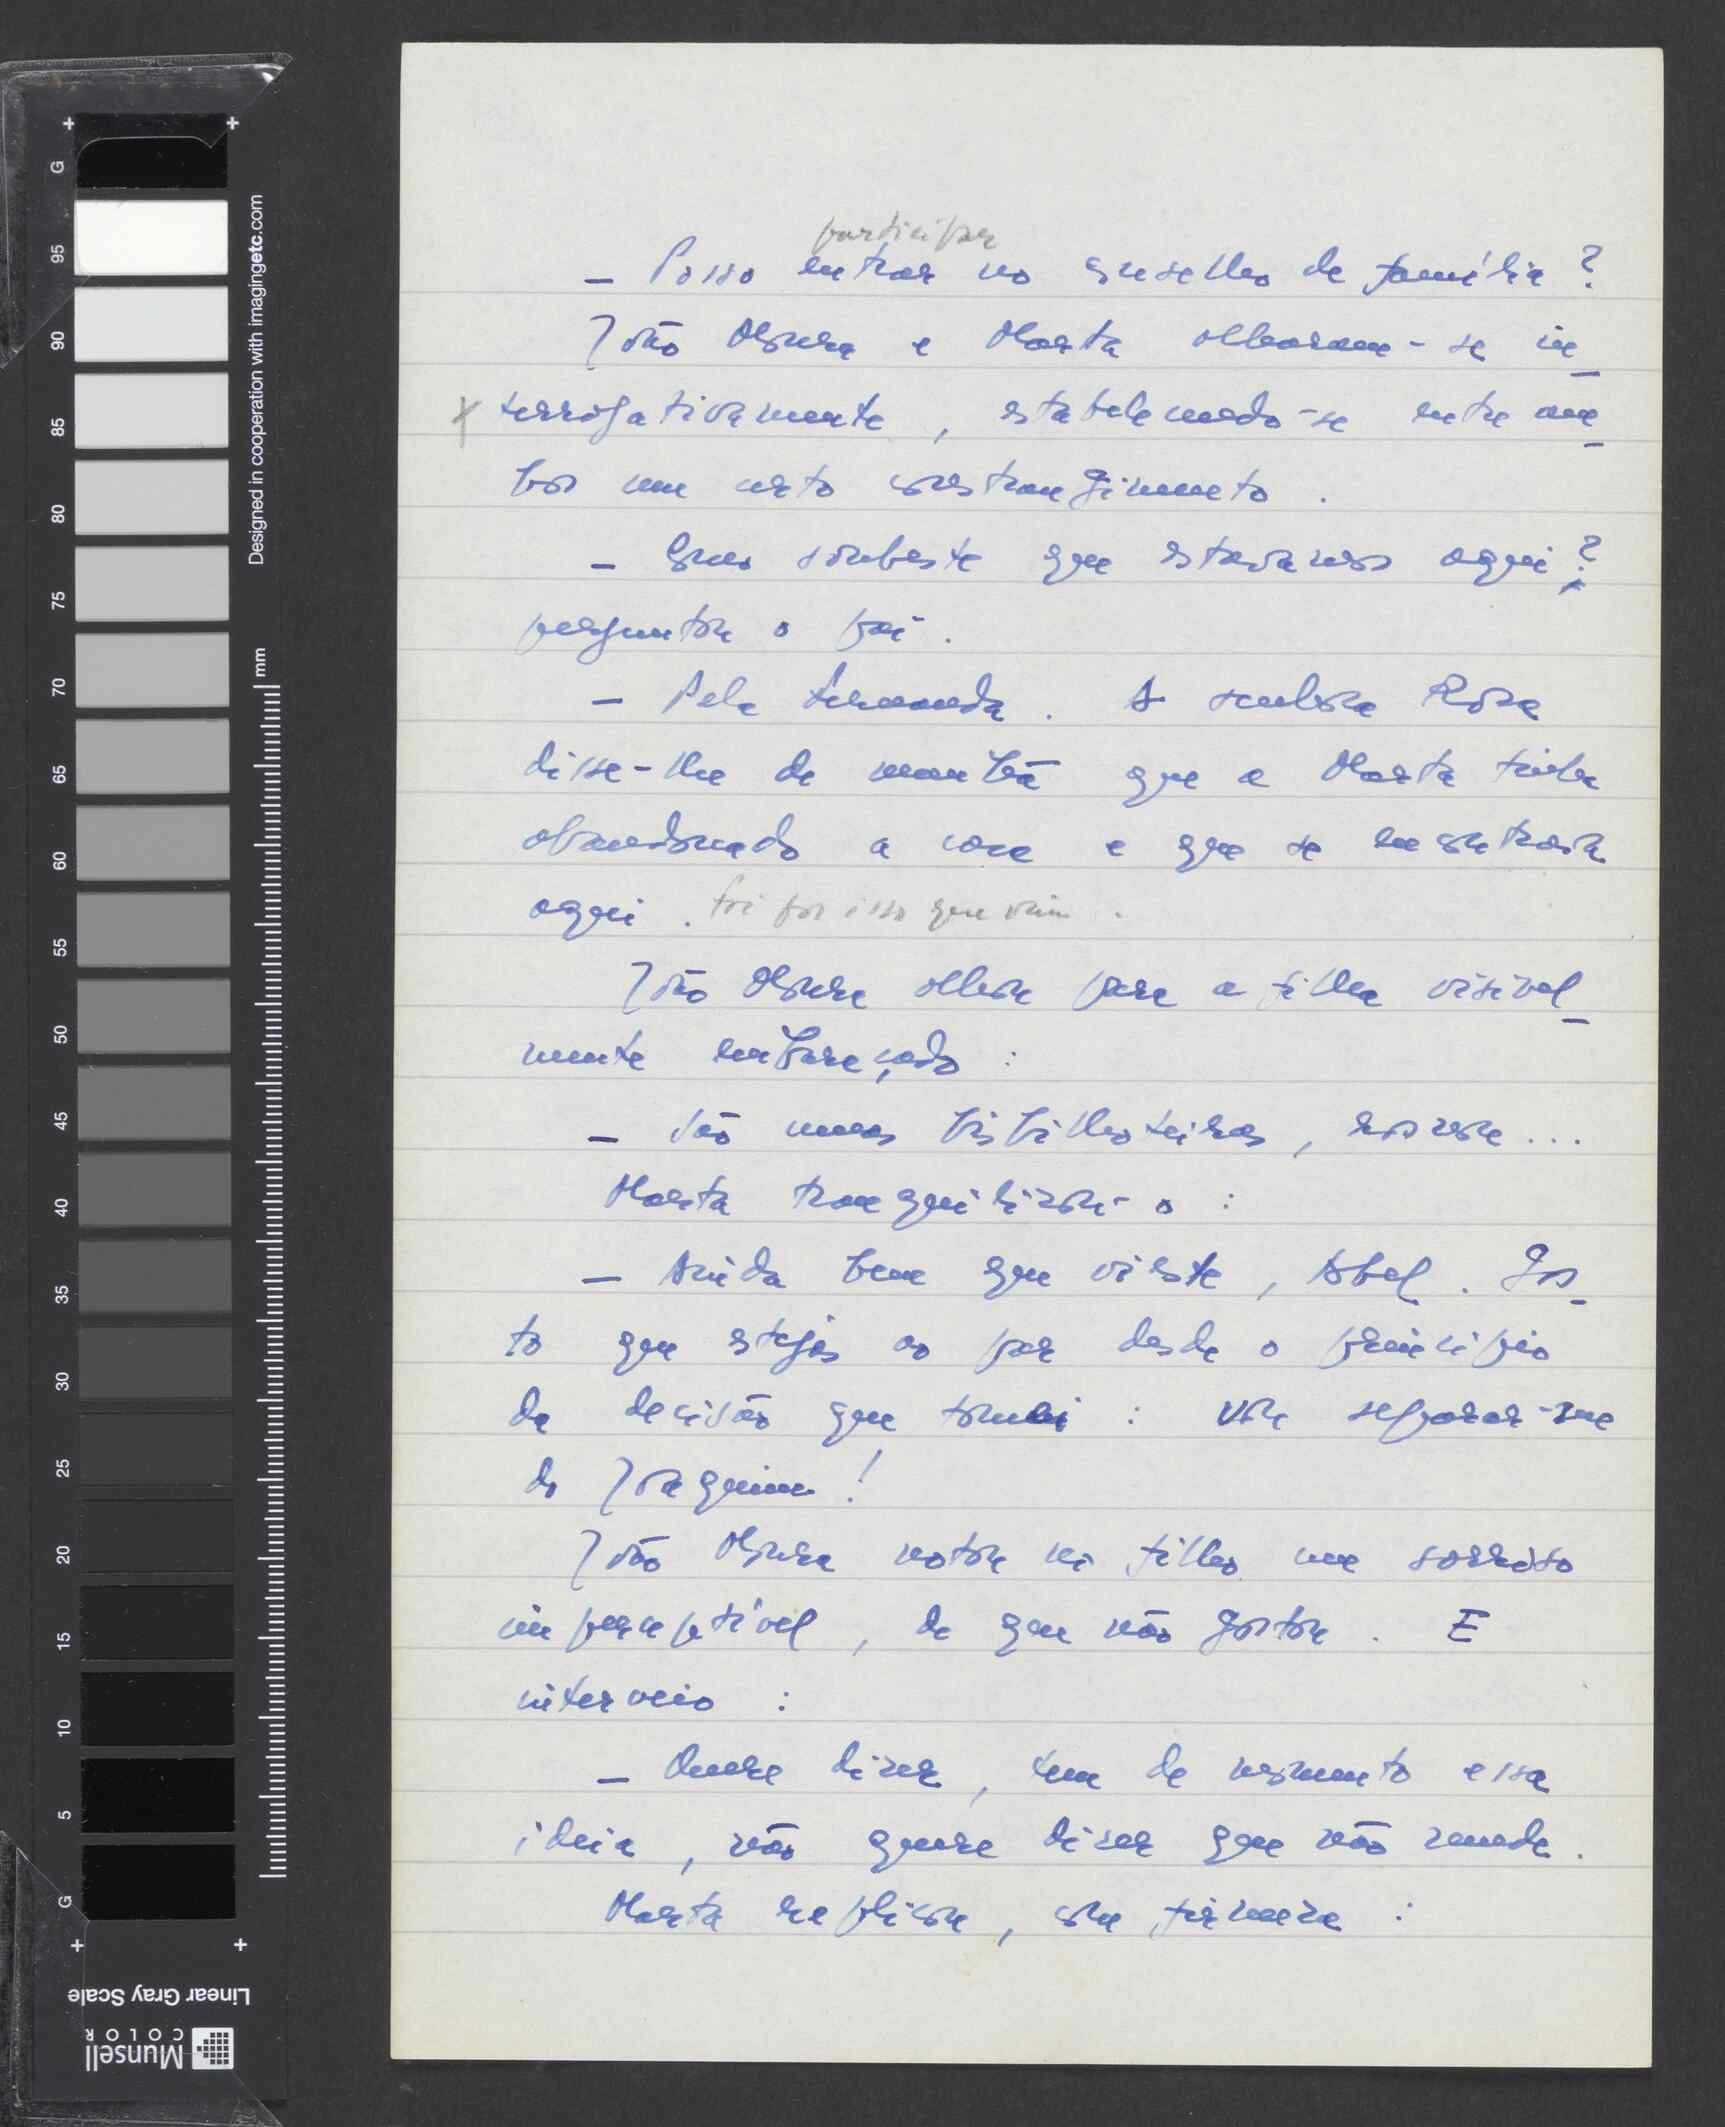 participar
— Posso entrar no conselho de família?
João Moura e Marta olharam-se in-
terrogativamente, estabelecendo-se entre am-
bos um certo constrangimento.
— Como soubeste que estávamos aqui?
perguntou o pai.
— Pela Fernanda. A senhora Rosa
disse-lhe de manhã que a Marta tinha
abandonado a casa e que se encontrava
aqui. Foi por isso que vim.
João Moura olhou para a filha visivel-
mente embaraçado:
— São umas bisbilhoteiras,
Marta tranquilizou-o:
— Ainda bem que vieste, Abel. Gos-
to que estejas ao par desde o princípio
da decisão que tomei: vou separar-me
do Joaquim!
João Moura notou no filho um sorriso
imperceptível, de que não gostou. E
interveio:
— Quere dizer, tem de momento essa
ideia, não quere dizer que não mude.
Marta replicou, com firmeza:
G
95
90
85
80
75
70
65
60
55
50
45
40
35
30
25
20
15
10
5
G
Designed in cooperation with imagingetc.com
mm
Linear Gray Scale
Munsell
COLOR